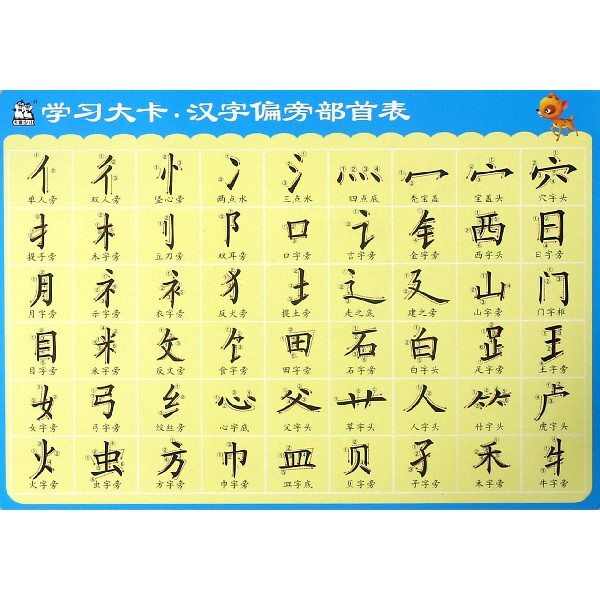 学习大卡·汉字偏旁部首表
亻 彳 忄 冫 氵 灬 冖 宀 穴
单人旁 双人旁 竖心旁 两点水 三点水 四点底 秃宝盖 宝盖头 穴字头
扌 木 刂 阝 口 讠 钅 西 日
提手旁 木字旁 立刀旁 双耳旁 口字旁 言字旁 金字旁 西字头 日字旁
月 礻 衤 犭 土 辶 廴 山 门
月字旁 示字旁 衣字旁 反犬旁 提土旁 走之底 建之旁 山字旁 门字框
目 米 攵 饣 田 石 白 𧾷 王
目字旁 米字旁 反文旁 食字旁 田字旁 石字旁 白字头 足字旁 王字旁
女 弓 纟 心 父 艹 人 𥫗 虍
女字旁 弓字旁 绞丝旁 心字底 父字头 草字头 人字头 竹字头 虎字头
火 虫 方 巾 皿 贝 子 禾 牜
火字旁 虫字旁 方字旁 巾字旁 皿字底 贝字旁 子字旁 禾字旁 牛字旁